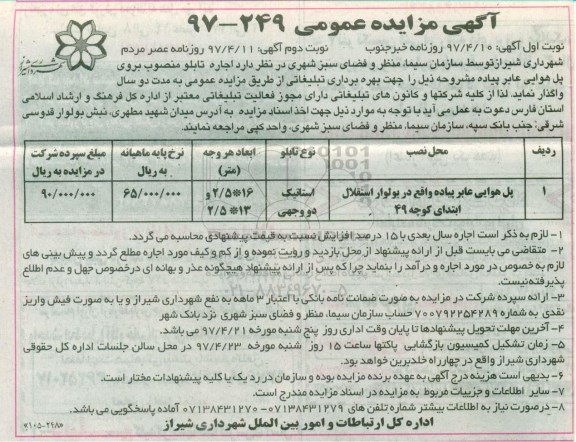 آگهی مزایده عمومی ۲۴۹-۹۷
نوبت اول آگهی: ۹۷/۴/۱۰ روزنامه خبرجنوب نوبت دوم آگهی: ۹۷/۴/۱۱ روزنامه عصر مردم
شهرداری شیراز توسط سازمان سیما، منظر و فضای سبز شهری در نظر دارد اجاره تابلو منصوب بروی
پل هوایی عابر پیاده مشروحه ذیل را جهت بهره برداری تبلیغاتی از طریق مزایده عمومی به مدت دو سال
واگذار نماید. لذا از کلیه شرکتها و کانون های تبلیغاتی دارای مجوز فعالیت تبلیغاتی معتبر از اداره کل فرهنگ و ارشاد اسلامی
استان فارس دعوت به عمل می آید با توجه به موارد ذیل جهت اخذ اسناد مزایده به آدرس میدان شهید مطهری، نبش بولوار قدوسی
شرقی: جنب بانک سپه، سازمان سیما، منظر و فضای سبز شهری، واحد کپی مراجعه نمایند.
ردیف محل نصب نوع تابلو ابعاد هر وجه (متر) نرخ پایه ماهیانه به ریال مبلغ سپرده شرکت در مزایده به ریال
۱ پل هوایی عابر پیاده واقع در بولوار استقلال ابتدای کوچه ۴۹ استاتیک دو وجهی ۱۶*۲/۵ و ۱۳*۲/۵ ۶۵/۰۰۰/۰۰۰ ۹۰/۰۰۰/۰۰۰
۱- لازم به ذکر است اجاره سال بعدی با ۱۵ درصد افزایش نسبت به قیمت پیشنهادی محاسبه می گردد.
۲- متقاضی می بایست قبل از ارائه پیشنهاد از محل بازدید و رویت نموده و از کم و کیف مورد اجاره مطلع گردد و پیش بینی های
لازم به خصوص در مورد اجاره و درآمد را بنماید چرا که پس از ارائه پیشنهاد هیچگونه عذر و بهانه ای درخصوص جهل و عدم اطلاع
پذیرفته نیست.
۳- ارائه سپرده شرکت در مزایده به صورت ضمانت نامه بانکی با اعتبار ۳ ماهه به نفع شهرداری شیراز و یا به صورت فیش واریز
نقدی به شماره ۷۰۰۷۹۲۲۵۴۲۸۹ حساب سازمان سیما، منظر و فضای سبز شهری نزد بانک شهر
۴- آخرین مهلت تحویل پیشنهادها تا پایان وقت اداری روز پنج شنبه مورخه ۹۷/۴/۲۱ می باشد.
۵- زمان تشکیل کمیسیون بازگشایی پاکتها ساعت ۱۵ روز شنبه مورخه ۹۷/۴/۲۳ در محل سالن جلسات اداره کل حقوقی
شهرداری شیراز واقع در چهارراه خلدبرین خواهد بود.
۶- بدیهی است هزینه درج آگهی به عهده برنده مزایده بوده و سازمان در رد یک یا کلیه پیشنهادات مختار است.
۷- سایر اطلاعات و جزییات مربوط به مزایده در اسناد مزایده مندرج است.
۸- درصورت نیاز به اطلاعات بیشتر شماره تلفن های ۰۷۱۳۸۴۳۱۲۷۹-۰۷۱۳۸۴۳۱۲۷۰ آماده پاسخگویی می باشد.
اداره کل ارتباطات و امور بین الملل شهرداری شیراز